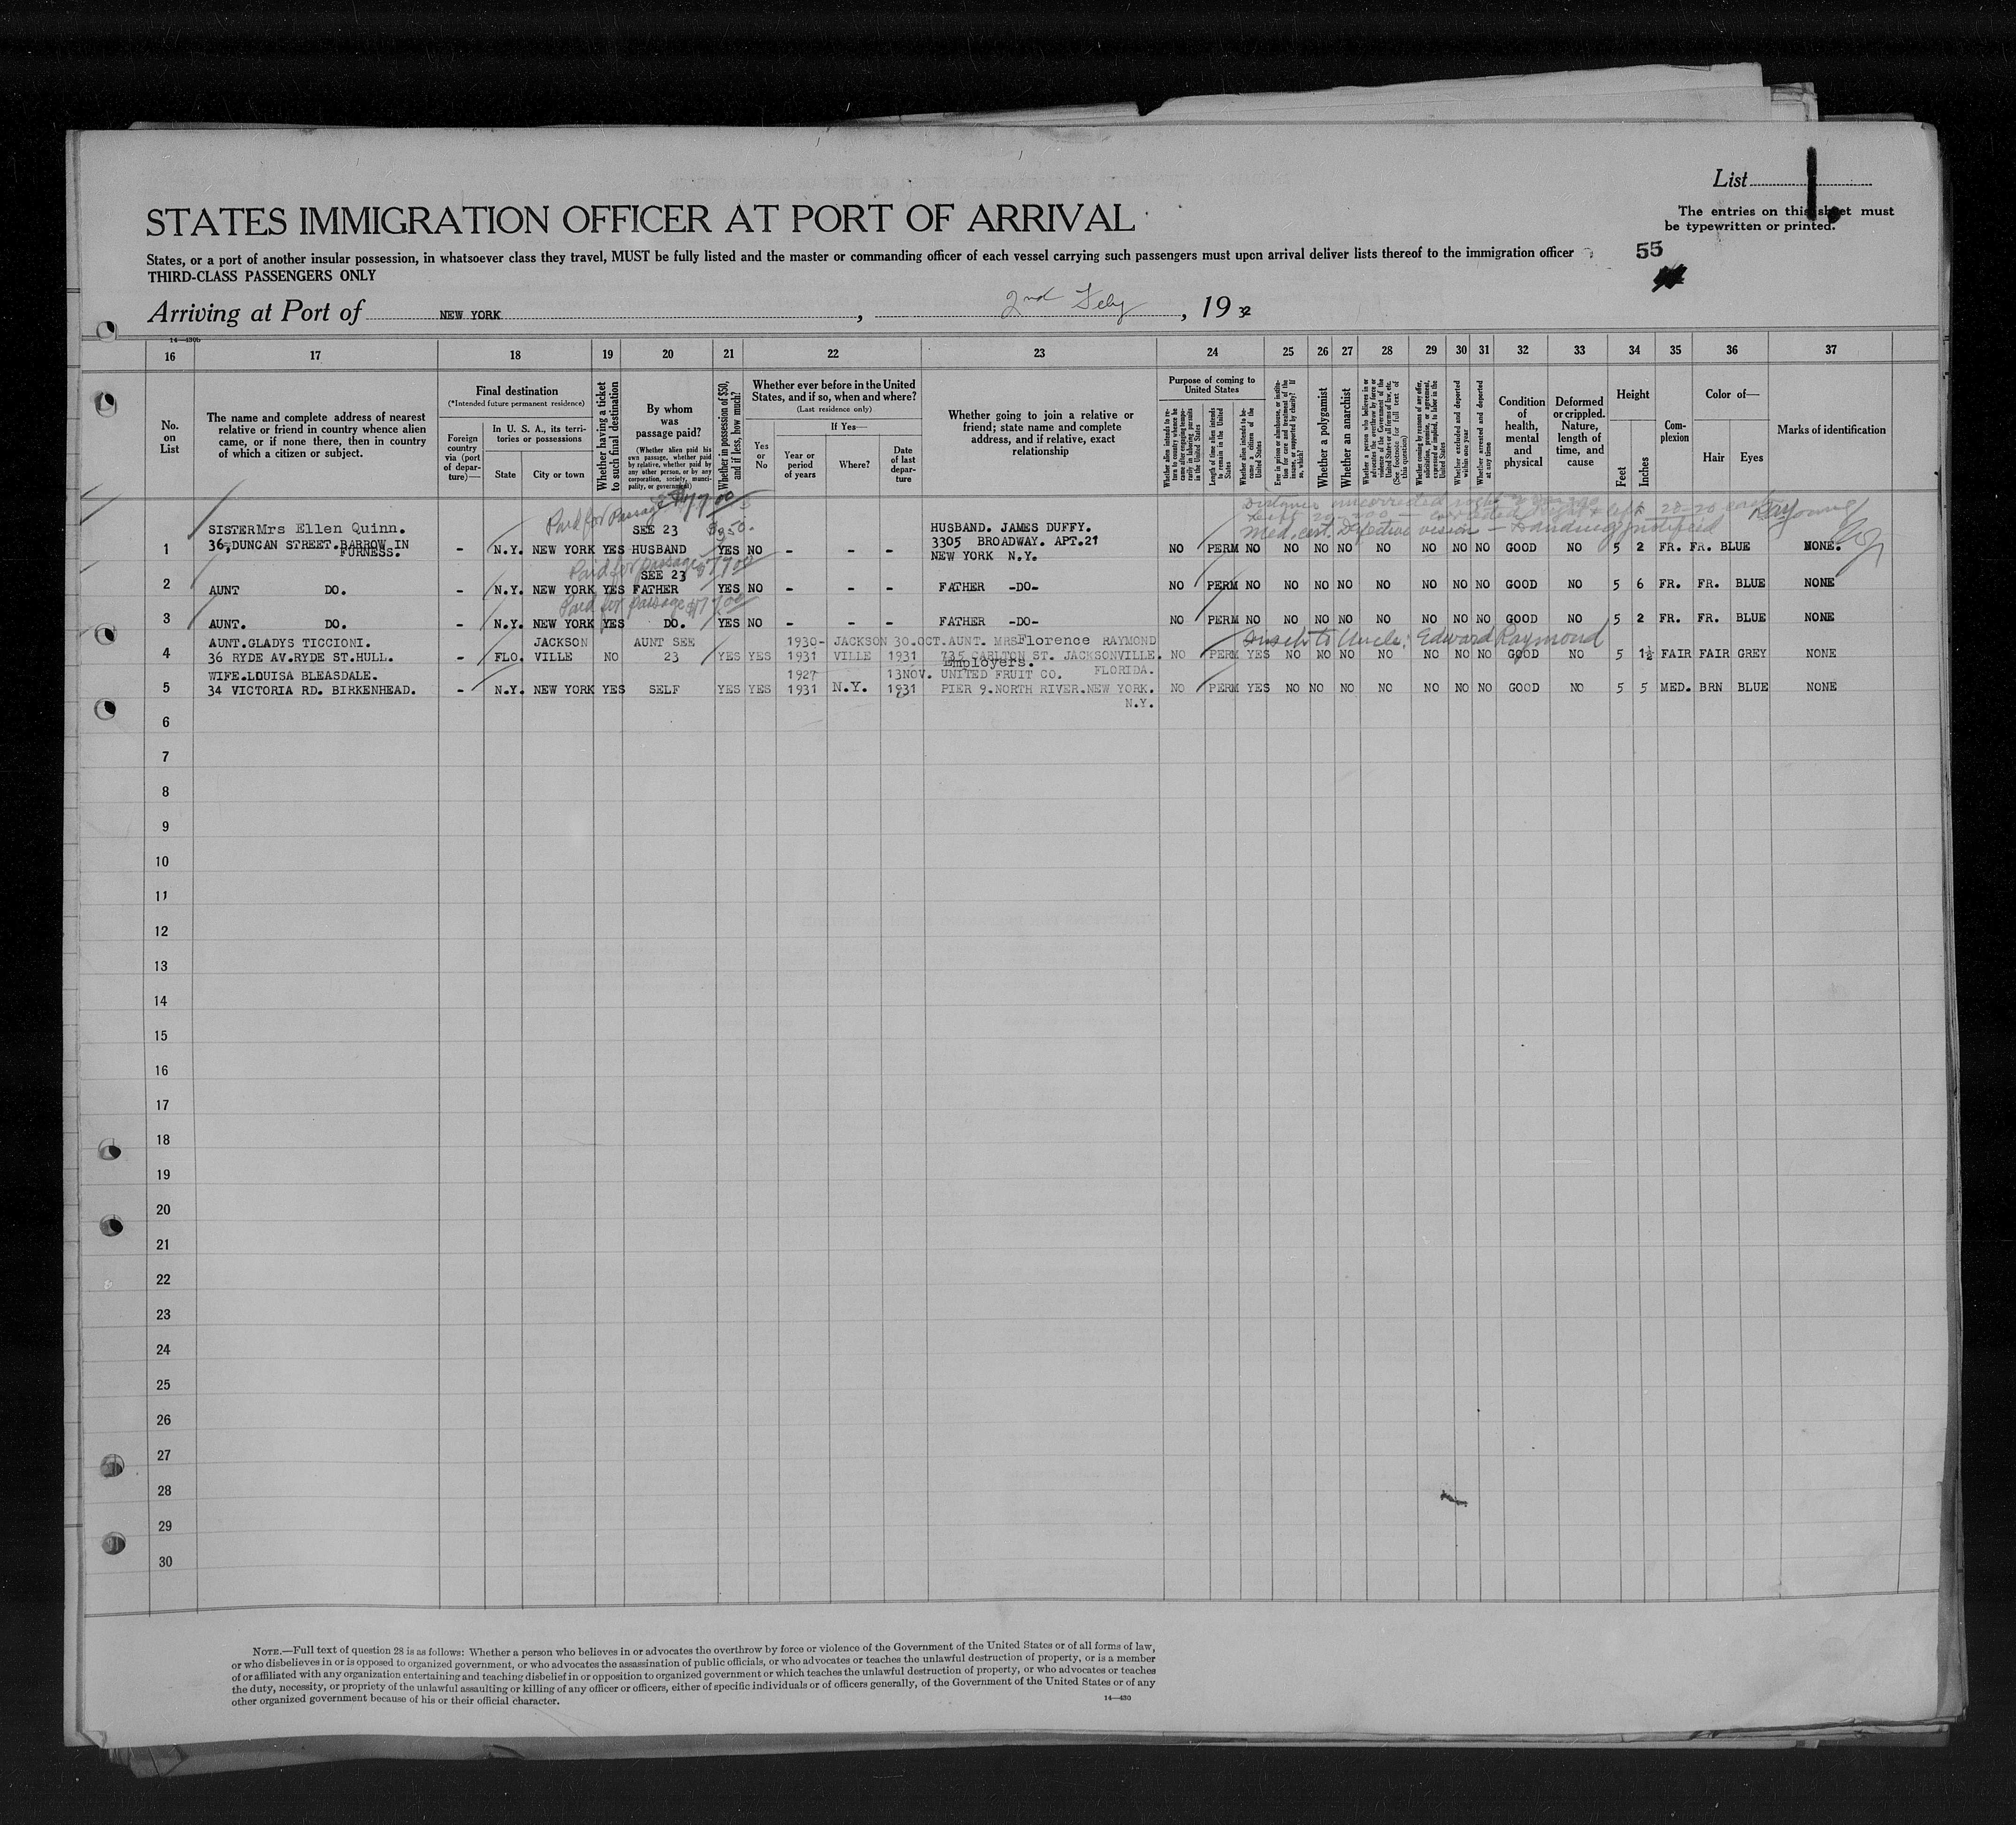 List 1
STATES IMMIGRATION OFFICER AT PORT OF ARRIVAL
The entries on this sheet must
be typewritten or printed.
States, or a port of another insular possession, in whatsoever class they travel, MUST be fully listed and the master or commanding officer of each vessel carrying such passengers must upon arrival deliver lists thereof to the immigration officer
THIRD-CLASS PASSENGERS ONLY
55
Arriving at Port of NEW YORK, 2nd Feby, 19 32
14—430b
16 17 18 19 20 21 22 23 24 25 26 27 28 29 30 31 32 33 34 35 36 37
No. on List
The name and complete address of nearest
relative or friend in country whence alien
came, or if none there, then in country
of which a citizen or subject.
Final destination
(*Intended future permanent residence)
Foreign country via (port of departure)—
In U. S. A., its territories or possessions
State
City or town
Whether having a ticket to such final destination
By whom was passage paid?
(Whether alien paid his own passage, whether paid by relative, whether paid by any other person, or by any corporation, society, municipality, or government)
Whether in possession of $50, and if less, how much?
Whether ever before in the United States, and if so, when and where?
(Last residence only)
Yes or No
If Yes—
Year or period of years
Where?
Date of last departure
Whether going to join a relative or
friend; state name and complete
address, and if relative, exact
relationship
Purpose of coming to United States
Whether alien intends to return to country whence he came after engaging temporarily in laboring pursuits in the United States
Length of time alien intends to remain in the United States
Whether alien intends to become a citizen of the United States
Ever in prison or almshouse, or institution for care and treatment of the insane, or supported by charity? If so, which?
Whether a polygamist
Whether an anarchist
Whether a person who believes in or advocates the overthrow by force or violence of the Government of the United States or all forms of law, etc. (See footnote for full text of this question)
Whether coming by reason of any offer, solicitation, promise, or agreement, expressed or implied, to labor in the United States
Whether excluded and deported within one year
Whether arrested and deported at any time
Condition of health, mental and physical
Deformed or crippled. Nature, length of time, and cause
Height
Feet
Inches
Complexion
Color of—
Hair
Eyes
Marks of identification
Paid for Passage $77.00
Med. cert. Defective vision — Landing notified
1 SISTER Mrs Ellen Quinn. 36, DUNCAN STREET. BARROW IN FURNESS. - N.Y. NEW YORK YES SEE 23 HUSBAND YES NO - - - HUSBAND. JAMES DUFFY. 3305 BROADWAY. APT.21 NEW YORK N.Y. NO PERM NO NO NO NO NO NO NO NO GOOD NO 5 2 FR. FR. BLUE NONE.
Paid for passage $77.00
2 AUNT DO. - N.Y. NEW YORK YES SEE 23 FATHER YES NO - - - FATHER -DO- NO PERM NO NO NO NO NO NO NO NO GOOD NO 5 6 FR. FR. BLUE NONE
Paid for passage $77.00
3 AUNT. DO. - N.Y. NEW YORK YES DO. YES NO - - - FATHER -DO- NO PERM NO NO NO NO NO NO NO NO GOOD NO 5 2 FR. FR. BLUE NONE
to Uncle: Edward Raymond
4 AUNT.GLADYS TICCIONI. 36 RYDE AV.RYDE ST.HULL. - FLO. JACKSON VILLE NO AUNT SEE 23 YES YES 1930- 1931 JACKSON VILLE 30.OCT. 1931 AUNT. MRS Florence RAYMOND 735 CARLTON ST. JACKSONVILLE. FLORIDA. NO PERM YES NO NO NO NO NO NO NO GOOD NO 5 1½ FAIR FAIR GREY NONE
5 WIFE.LOUISA BLEASDALE. 34 VICTORIA RD. BIRKENHEAD. - N.Y. NEW YORK YES SELF YES YES 1927 1931 N.Y. 13NOV. 1931 Employers. UNITED FRUIT CO. PIER 9.NORTH RIVER.NEW YORK. N.Y. NO PERM YES NO NO NO NO NO NO NO GOOD NO 5 5 MED. BRN BLUE NONE
6
7
8
9
10
11
12
13
14
15
16
17
18
19
20
21
22
23
24
25
26
27
28
29
30
NOTE.—Full text of question 28 is as follows: Whether a person who believes in or advocates the overthrow by force or violence of the Government of the United States or of all forms of law,
or who disbelieves in or is opposed to organized government, or who advocates the assassination of public officials, or who advocates or teaches the unlawful destruction of property, or is a member
of or affiliated with any organization entertaining and teaching disbelief in or opposition to organized government or which teaches the unlawful destruction of property, or who advocates or teaches
the duty, necessity, or propriety of the unlawful assaulting or killing of any officer or officers, either of specific individuals or of officers generally, of the Government of the United States or of any
other organized government because of his or their official character.
14—430